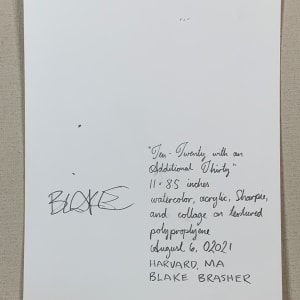 "Ten-Twenty with an
Additional Thirty"
11 · 85 inches
watercolor, acrylic, Sharpie,
and collage on textured
polypropylene
August 6, 02021
HARVARD, MA
BLAKE BRASHER
BLAKE